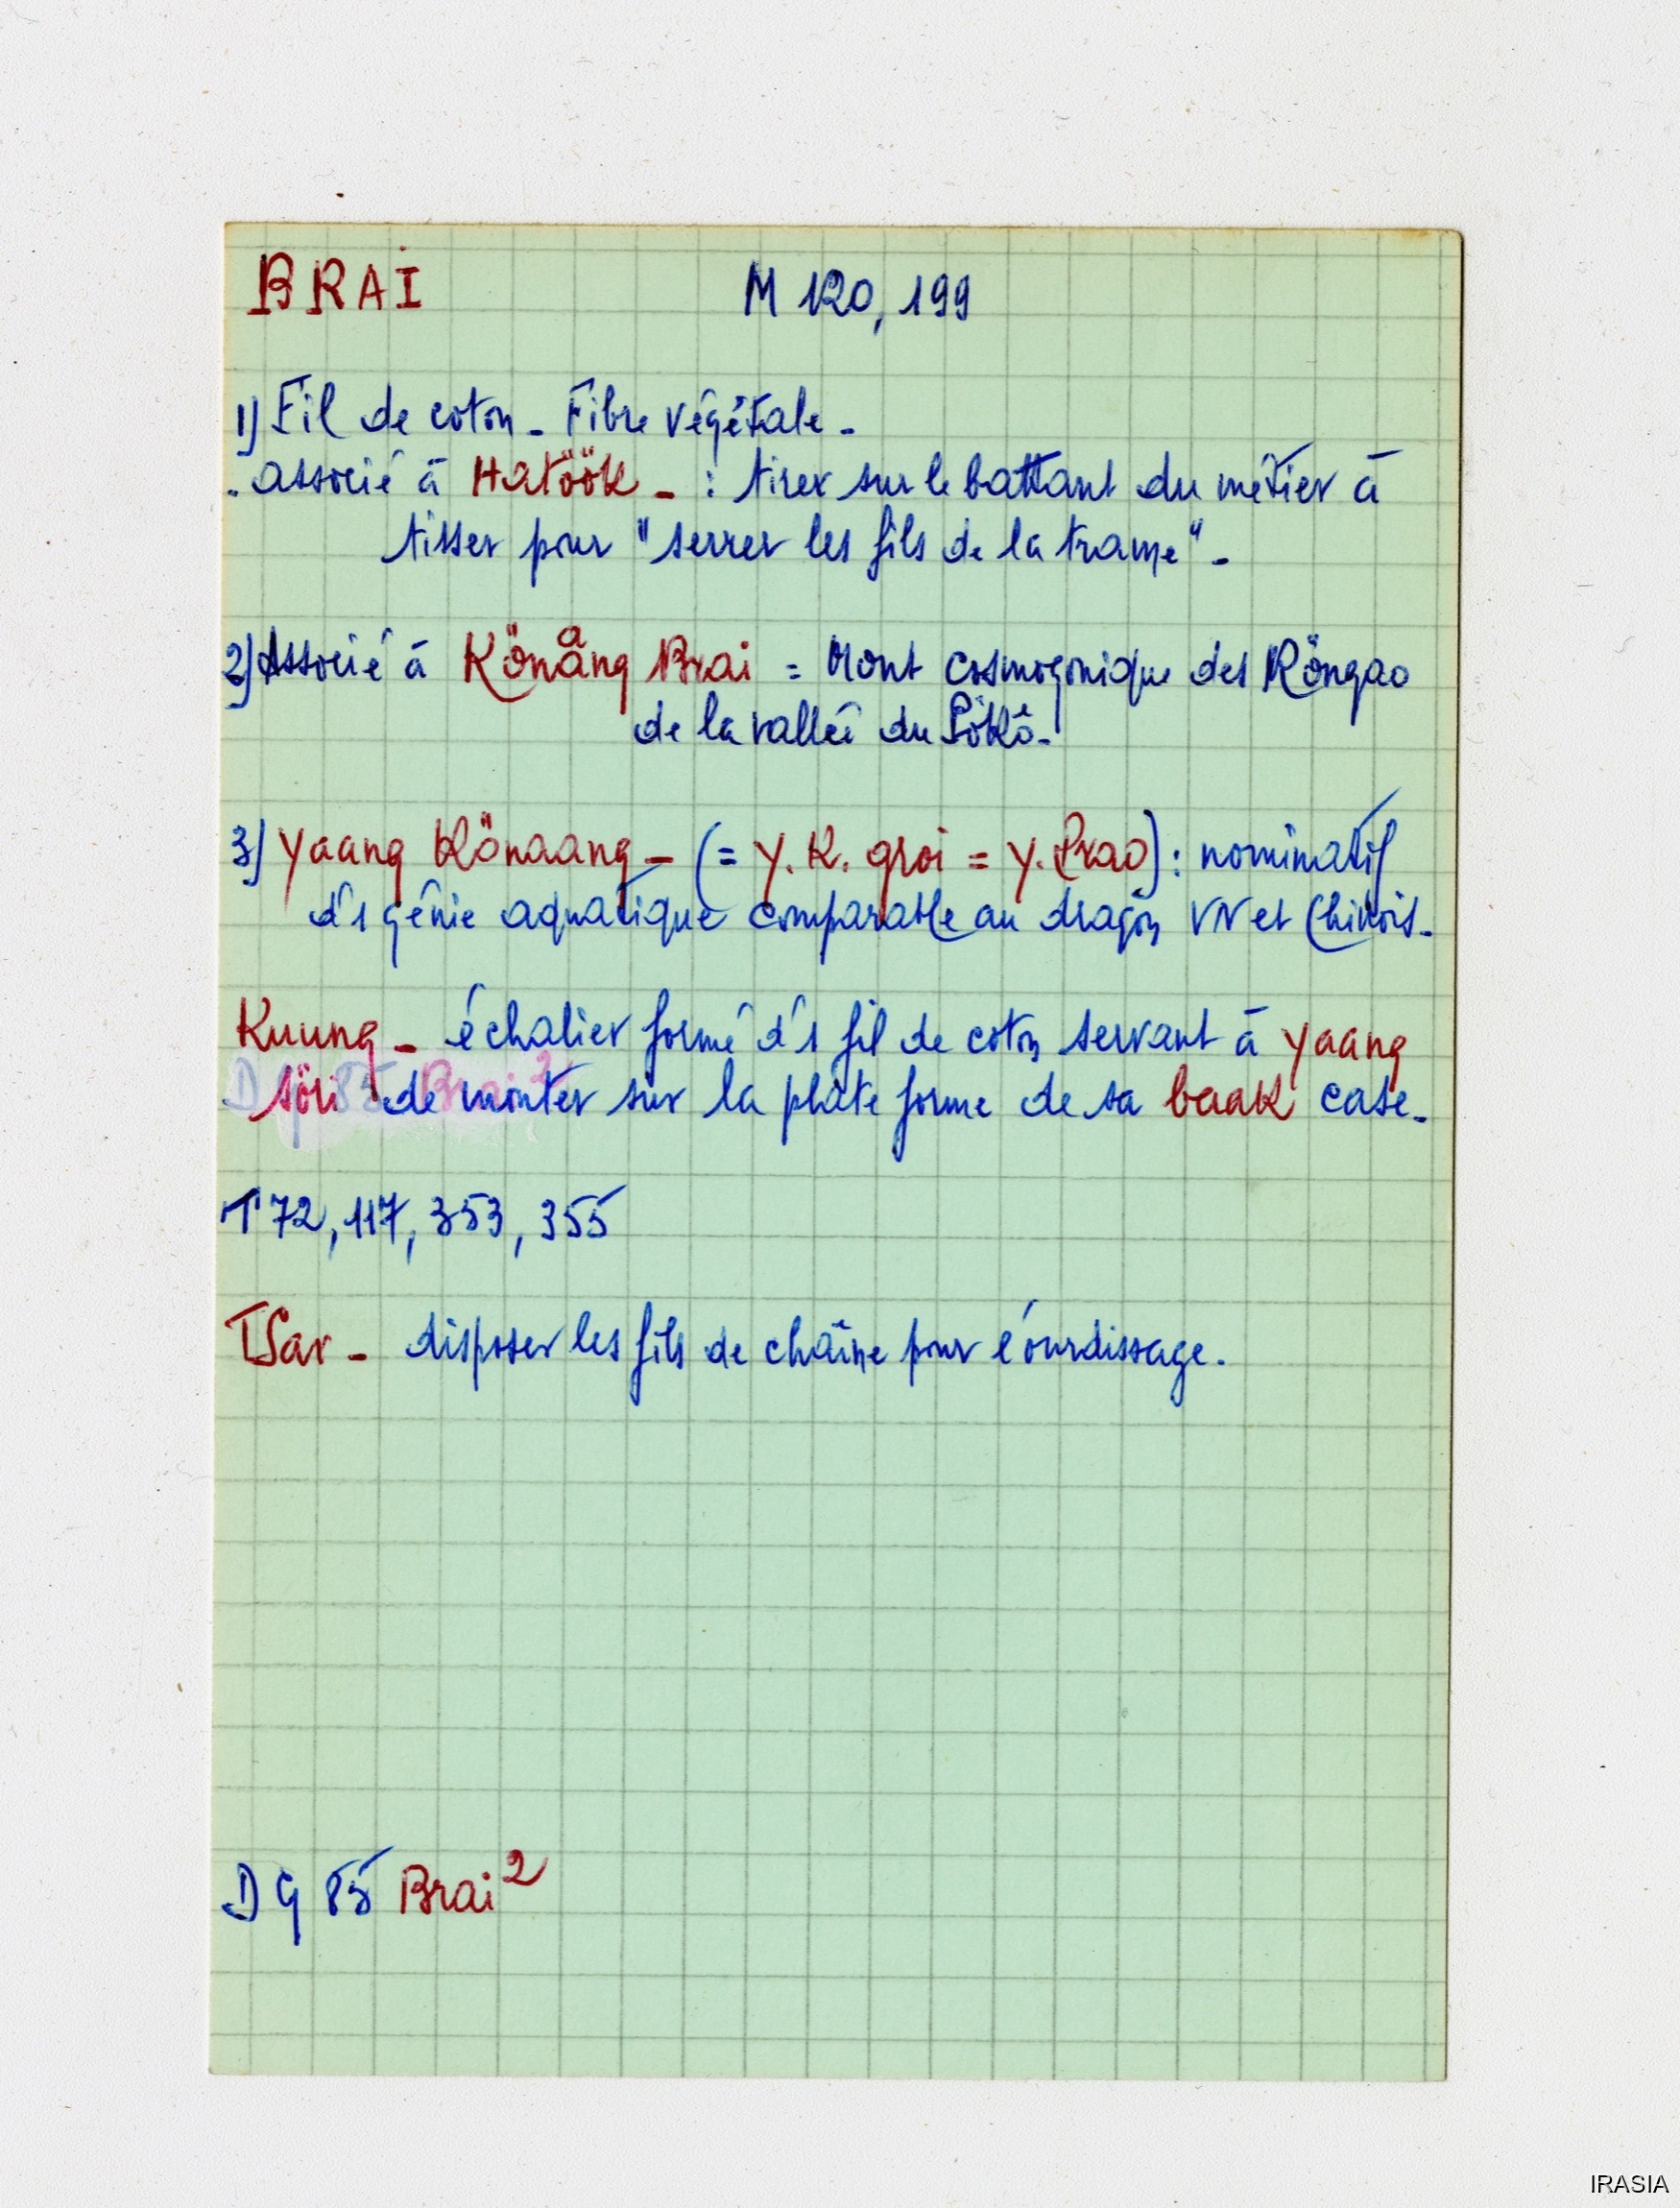 BRAI M 120, 199
1) Fil de coton - Fibre végétale -
. associé à Hatöök - : tirer sur le battant du métier à
tisser pour "serrer les fils de la trame" -
2) Associé à Könång Brai = Mont cosmogonique des Röngao
de la vallée du Pökô -
3) Yaang Könaang - (= Y. K. groi = Y. Prao) : nominatif
d'1 génie aquatique comparable au dragon VN et Chinois -
Kuung - échalier formé d'1 fil de coton servant à Yaang
söri de monter sur la plate forme de sa baak case -
T 72, 117, 353, 355
TSar - disposer les fils de chaîne pour l'ourdissage.
DG 85 Brai²
IRASIA